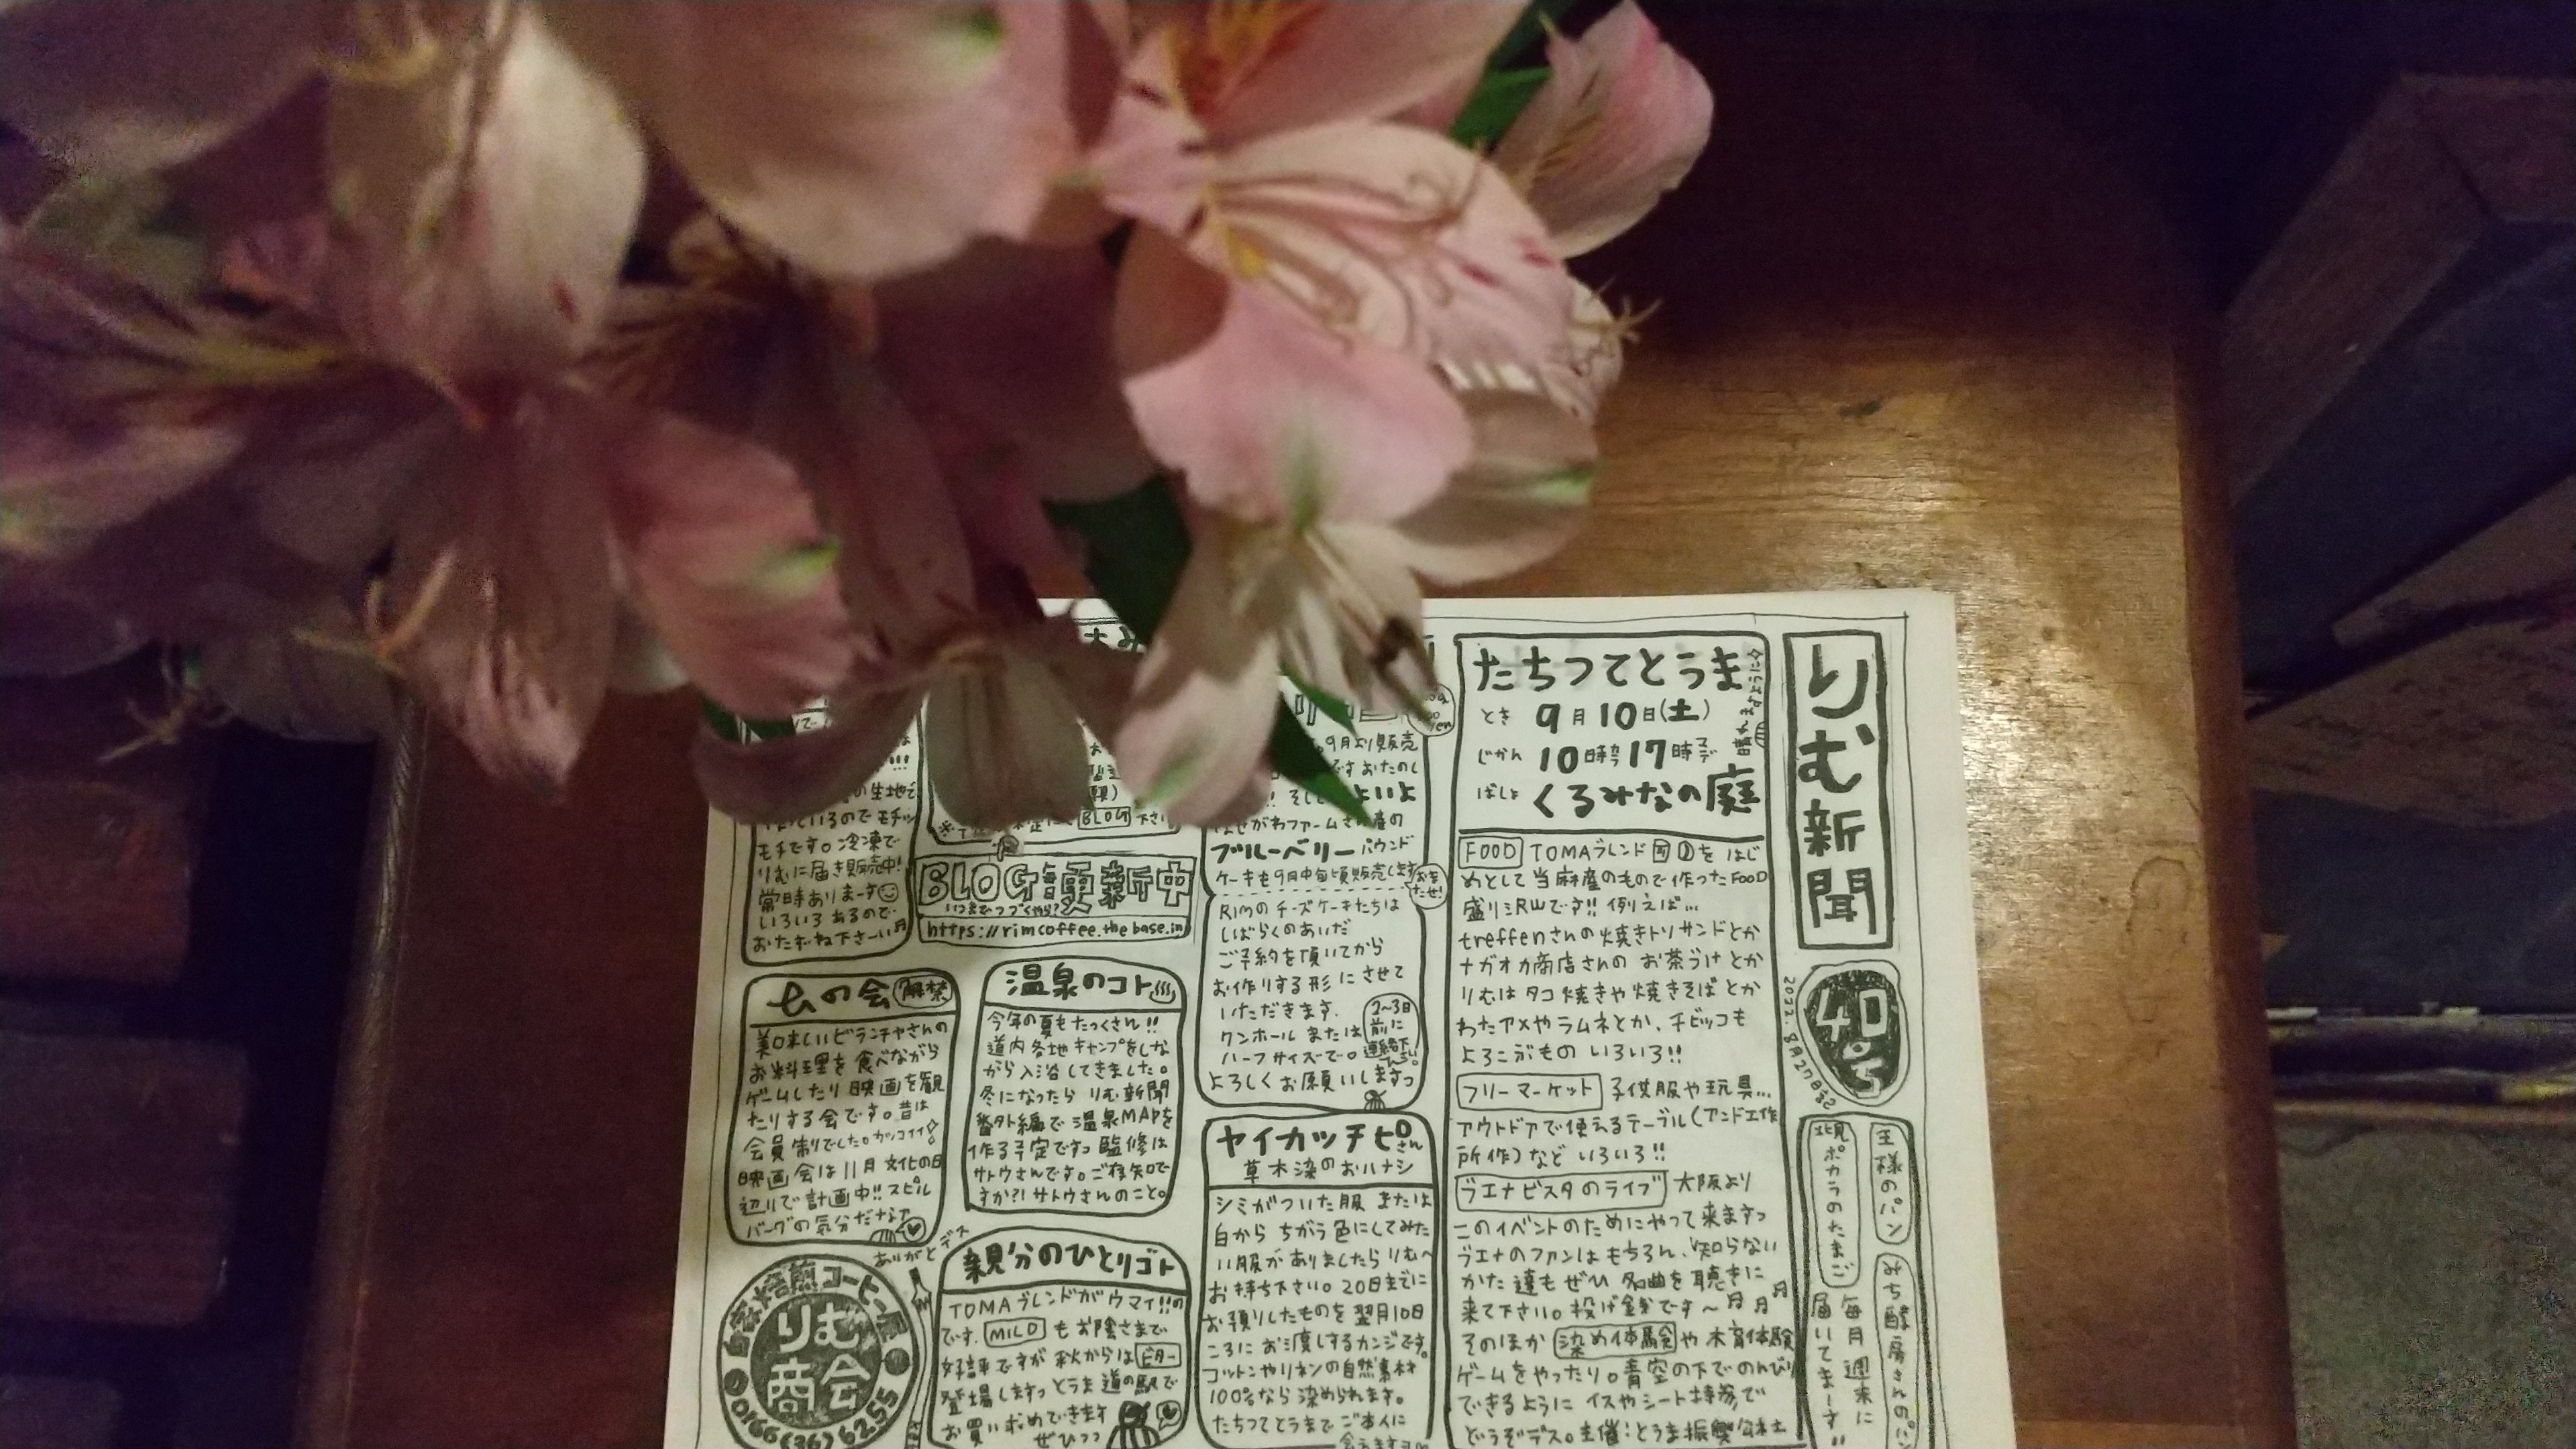 りむ新聞
40号
2022.8月27日(土)
王様のパン
みち酵房さんのパン
ポカラのたまご
毎月週末に
届いてまーす!!
たちつてとうま
晴れますように
とき 9月10日(土)
じかん 10時カラ17時マデ
ばしょ くるみなの庭
FOOD TOMAブレンド を はじ
めとして当麻産のもので作ったFOOD
盛りだくさんです!! 例えば…
treffenさんの焼きトリサンドとか
ナガオカ商店さんの お茶づけとか
りむは タコ焼きや焼きそばとか
わたアメやラムネとか、チビッコも
よろこぶもの いろいろ!!
フリーマーケット 子供服や玩具…
アウトドアで使えるテーブル(アンド工作
所作)など いろいろ!!
ブエナビスタのライブ 大阪より
このイベントのためにやって来ますっ
ブエナのファンはもちろん、知らない
かた達も ぜひ 名曲を聴きに
来て下さい。投げ銭です〜
そのほか 染め体験や木育体験
ゲームをやったり。青空の下でのんびり
できるように イスやシート持参で
どうぞデス。主催:とうま振興公社
9月より販売
ですおたのし
はせがわファームさん産の
ブルーベリーパウンド
ケーキも9月中旬頃販売します
おまたせ!
Rimのチーズケーキたちは
しばらくのあいだ
ご予約を頂いてから
お作りする形にさせて
いただきます.
ワンホールまたは
ハーフサイズで。
よろしくお願いしますっ
2〜3日
前に
連絡下さい。
ヤイカッチピロさん
草木染のおハナシ
シミがついた服 または
白から ちがう色にしてみた
い服がありましたら りむへ
お持ち下さい。20日までに
お預りしたものを 翌月10日
ころに お渡しするカンジです。
コットンやリネンの自然素材
100%なら染められます。
たちつてとうまで ご本人に
会えますヨ
BLOG 下さい
BLOG更新中
いつまでつづくやら?
https://rimcoffee.thebase.in
温泉のコト
今年の夏もたっくさん!!
道内各地キャンプをしな
がら入浴してきました。
冬になったら りむ新聞
番外編で温泉MAPを
作る予定ですっ 監修は
サトウさんです。ご存知で
すか?! サトウさんのこと。
親分のひとりゴト
TOMAブレンドがウマイ!!の
です. MILD も お陰さまで
好評ですが 秋からは ビター
登場しますっ とうま道の駅で
お買いもめできます
ぜひっっ
の生地で
作っているのでモチッ
モチです。冷凍で
りむに届き販売中!
常時ありまーす
いろいろあるので
おたずね下さーい
ムの会 解禁
美味しいビランチャさんの
お料理を食べながら
ゲームしたり映画を観
たりする会です。昔は
会員制でした。カッコイイ
映画会は11月文化の日
辺りで計画中!! スピル
バーグの気分だナァ
ありがとデス
自家焙煎コーヒー屋
りむ
商会
0166(36)6255